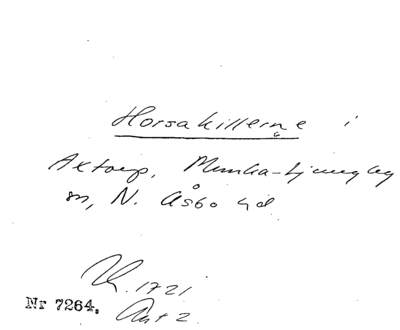 Horsakillerne i
Axtorp, Munka-Ljungby
sn, N. Åsbo hd
1721
Nr 7264. Akt 2